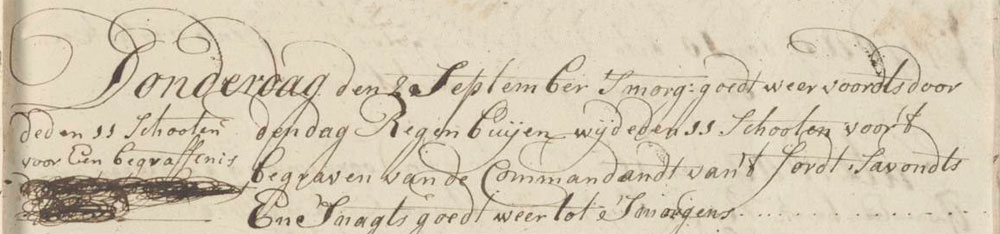 Donderdag den 2e September Smorg: goedt weer voordts door
den dag Regen buijen wij deden 11 Schooten voor't
begraven van de Commandandt van't fordt, Savondts
En Snagts goedt weer tot Smorgens
deden 11 Schooten
voor Een begraffenis